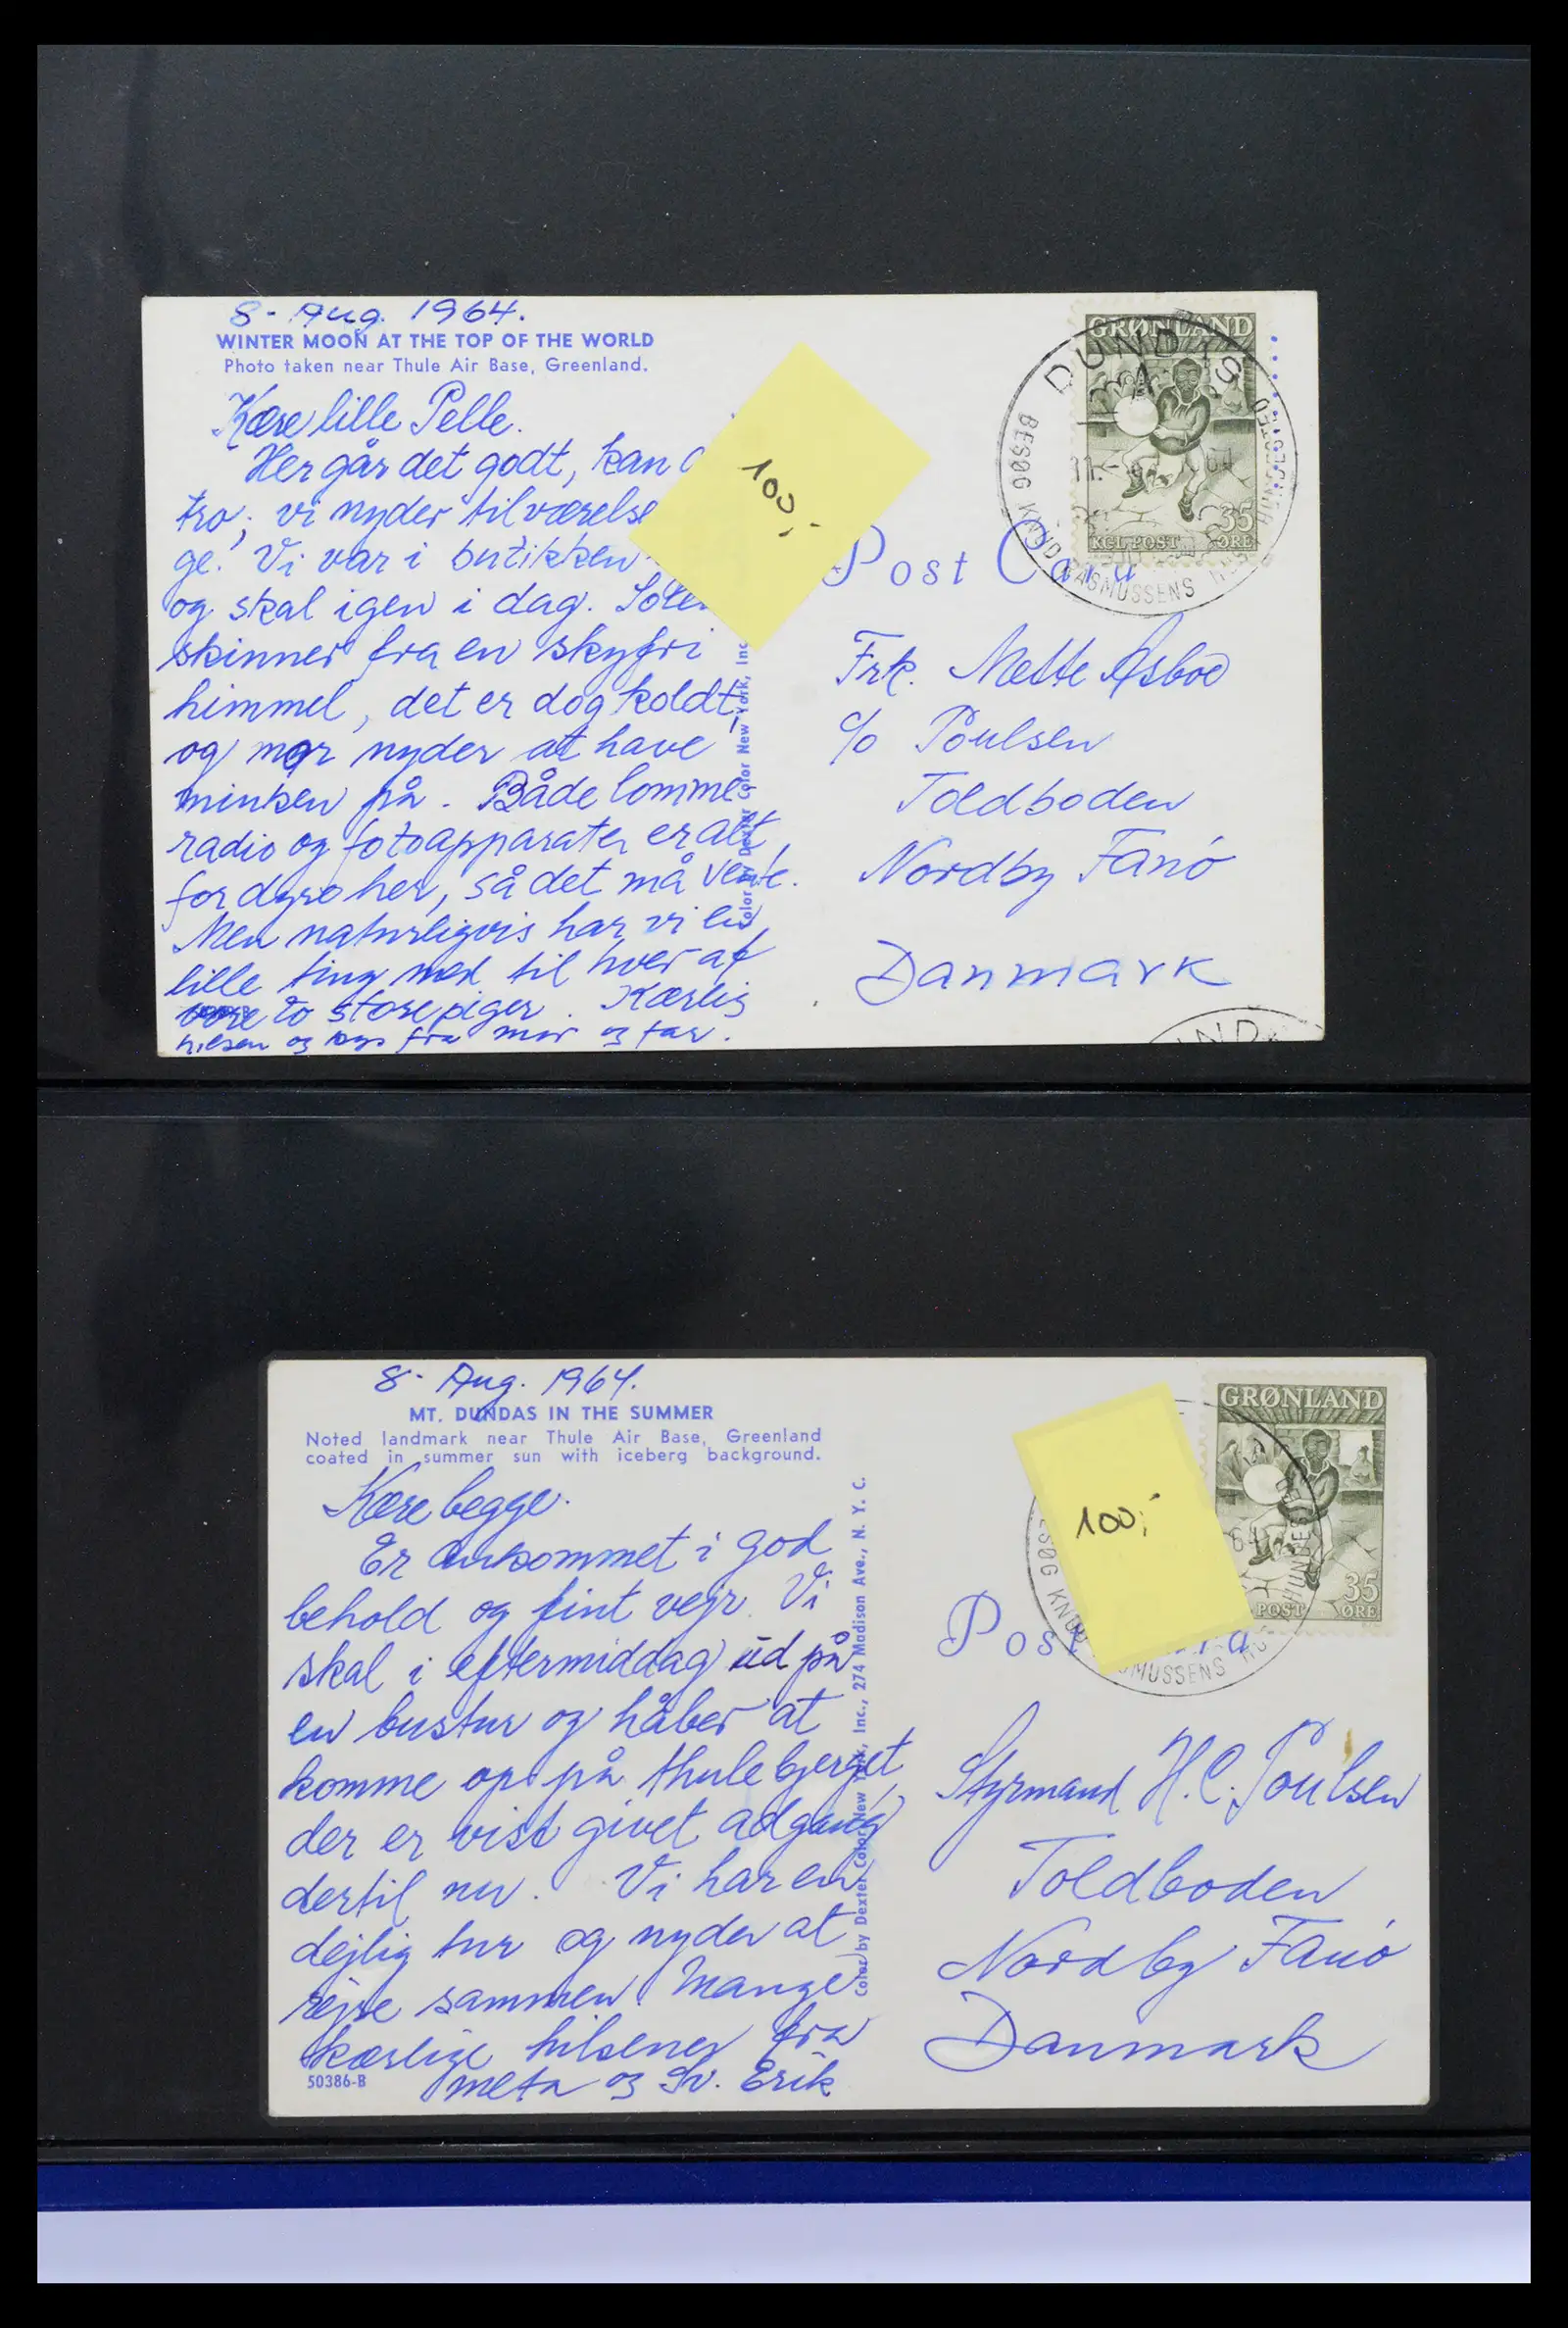 8- Aug. 1964.
WINTER MOON AT THE TOP OF THE WORLD
Photo taken near Thule Air Base, Greenland.
Kære lille Pelle.
Her går det godt, kan
tro, vi nyder tilværelse
ge. Vi var i butikken
og skal igen i dag. Solen
skinner fra en skyfri
himmel, det er dog koldt,
og mor nyder at have
minken på. Både lomme-
radio og fotoapparater er alt
for dyre her, så det må vente.
Men naturligvis har vi en
lille ting med til hver af
vore to store piger. Kærlig
hilsen og kys fra mor og far.
Color by Dexter Color New York, Inc
100,-
Post Card
GRØNLAND
35
KGL POST ØRE
DUNDAS
11. 64
BESØG KNUD RASMUSSENS HUS HUNDESTED
Frk. Mette Asboe
c/o Poulsen
Toldboden
Nordby Fanø
Danmark
UNDA
8- Aug. 1964.
MT. DUNDAS IN THE SUMMER
Noted landmark near Thule Air Base, Greenland
coated in summer sun with iceberg background.
Kære begge.
Er ankommet i god
behold og fint vejr. Vi
skal i eftermiddag ud på
en bustur og håber at
komme op på thulebjerget,
der er vist givet adgang
dertil nu. Vi har en
dejlig tur og nyder at
rejse sammen. Mange
kærlige hilsener fra
Meta og Sv. Erik
50386-B
Color by Dexter Color New York, Inc., 274 Madison Ave., N. Y. C.
100,-
Post Card
GRØNLAND
35
POST ØRE
64
ESØG KNUD RASMUSSENS HUS HUNDESTED
Styrmand H.C. Poulsen
Toldboden
Nordby Fanø
Danmark